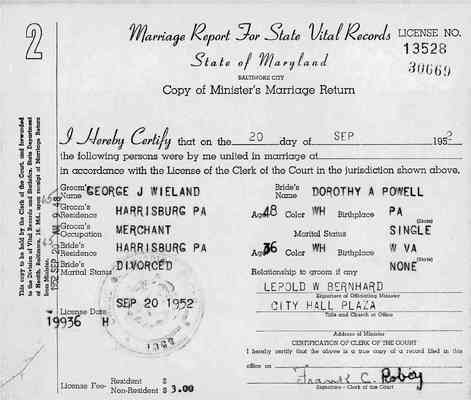 2
Marriage Report For State Vital Records
LICENSE NO.
13528
30669
State of Maryland
BALTIMORE CITY
Copy of Minister's Marriage Return
I Hereby Certify that on the 20 day of SEP 1952
the following persons were by me united in marriage at
in accordance with the License of the Clerk of the Court in the jurisdiction shown above.
Groom's Name GEORGE J WIELAND Bride's Name DOROTHY A POWELL
Groom's Residence HARRISBURG PA Age 48 Color WH Birthplace PA
(State)
Groom's Occupation MERCHANT Marital Status SINGLE
Bride's Residence HARRISBURG PA Age 36 Color WH Birthplace W VA
(State)
Bride's Marital Status DIVORCED Relationship to groom if any NONE
LEPOLD W BERNHARD
Signature of Officiating Minister
SEP 20 1952
CITY HALL PLAZA
Title and Church or Office
License Date
19936 H
Address of Minister
CERTIFICATION OF CLERK OF THE COURT
I hereby certify that the above is a true copy of a record filed in this
office on
Frank C. Robey
Signature - Clerk of the Court
License Fee- Resident $
Non-Resident $ 3.00
This copy to be held by Clerk of the Court, and forwarded
to the Division of Vital Records and Statistics, State Department
of Health, Baltimore, 18, Md., upon receipt of Marriage Return
from Minister.
1952 SEP